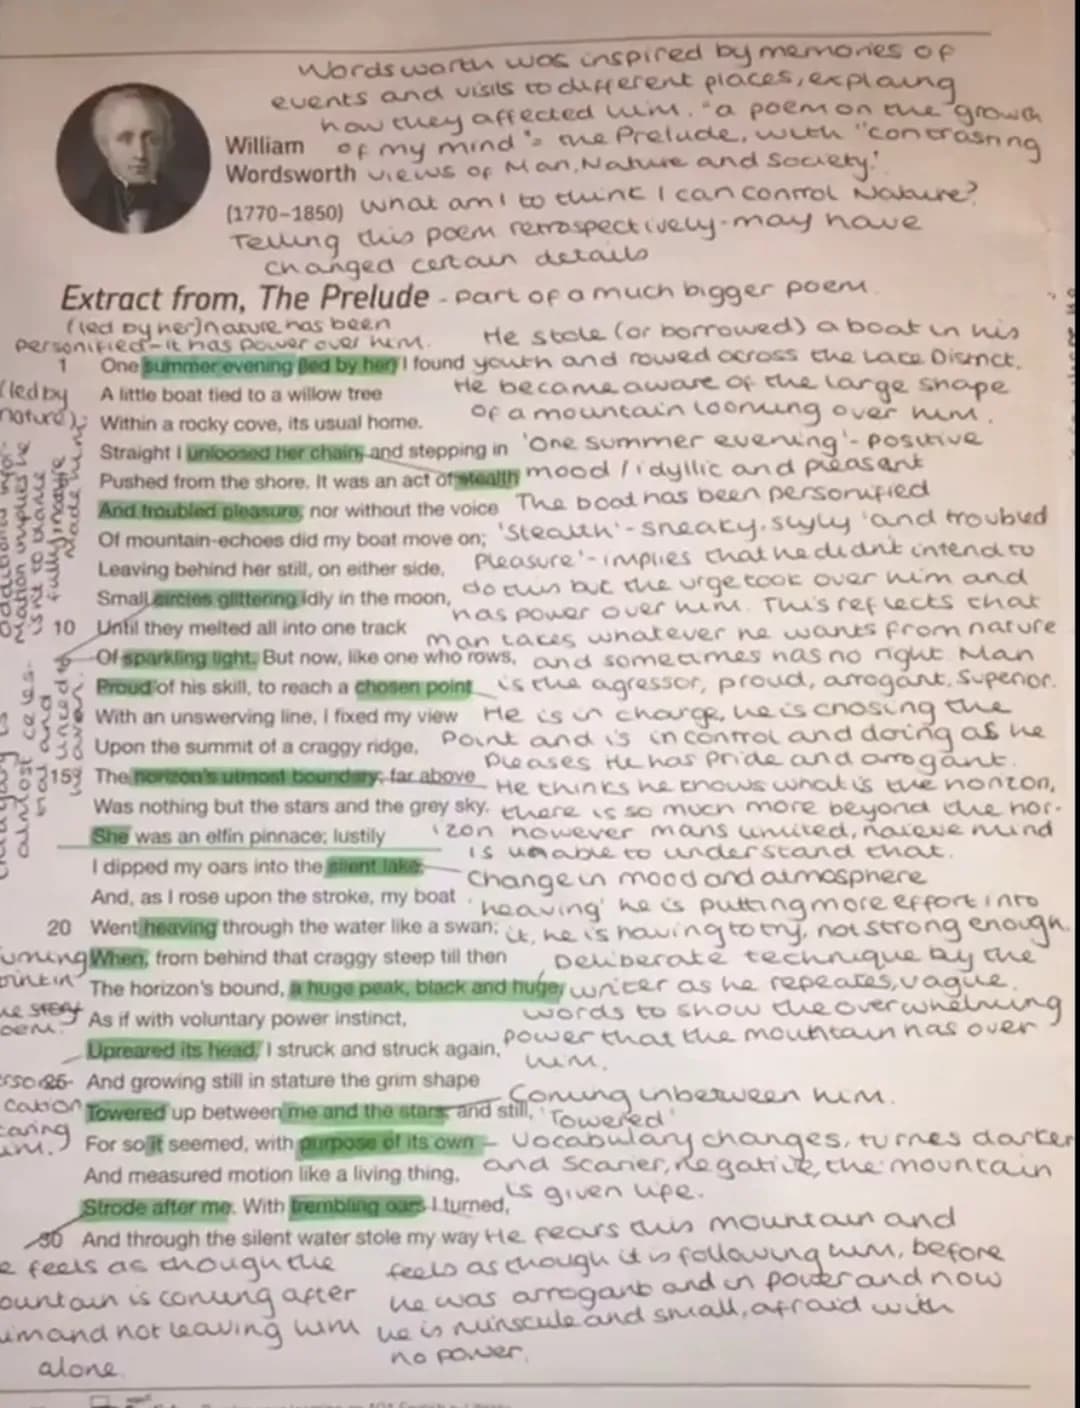 Wordsworth was inspired by memories of
events and visits to different places, explaing
how they affected him. "a poem on the growth
William of my mind"= the Prelude, with "contrasting
Wordsworth views of Man, Nature and Society."
(1770–1850) What am I to think I can control Nature?
Telling this poem retrospectively - may have
changed certain details
Extract from, The Prelude - part of a much bigger poem
(led by her) nature has been
personified - it has power over him.
He stole (or borrowed) a boat in his
1 One summer evening (led by her) I found
youth and rowed across the Lake District.
A little boat tied to a willow tree
He became aware of the large shape
Within a rocky cove, its usual home.
of a mountain looming over him.
Straight I unloosed her chain, and stepping in
'One summer evening' - positive
Pushed from the shore. It was an act of stealth
mood / idyllic and pleasant
And troubled pleasure, nor without the voice
The boat has been personified
Of mountain-echoes did my boat move on;
'Stealth' - sneaky, slyly 'and troubled
Leaving behind her still, on either side,
Pleasure' - implies that he didn't intend to
Small circles glittering idly in the moon,
do this but the urge took over him and
has power over him. This reflects that
10 Until they melted all into one track
man takes whatever he wants from nature
Of sparkling light. But now, like one who rows,
and sometimes has no right. Man
Proud of his skill, to reach a chosen point
is the agressor, proud, arrogant, superior.
With an unswerving line, I fixed my view
He is in charge, he is chosing the
Upon the summit of a craggy ridge,
Point and is in control and doing as he
pleases He has pride and arrogant.
15 The horizon's utmost boundary; far above
He thinks he knows what is the horizon,
Was nothing but the stars and the grey sky.
there is so much more beyond the hor-
She was an elfin pinnace; lustily
izon however mans limited, naieve mind
is unable to understand that.
I dipped my oars into the silent lake,
Change in mood and atmosphere
And, as I rose upon the stroke, my boat
'heaving' he is putting more effort into
20 Went heaving through the water like a swan;
it, he is having to try, not strong enough.
When, from behind that craggy steep till then
Deliberate technique by the
The horizon's bound, a huge peak, black and huge,
writer as he repeates, vague
As if with voluntary power instinct,
words to show the overwhelming
Upreared its head. I struck and struck again,
power that the mountain has over
him.
25 And growing still in stature the grim shape
Coming inbetween him.
Towered up between me and the stars, and still,
'Towered'
For so it seemed, with purpose of its own
Vocabulary changes, turnes darker
And measured motion like a living thing,
and scarier, negative, the mountain
is given life.
Strode after me. With trembling oars I turned,
30 And through the silent water stole my way
He fears this mountain and
feels as though it is following him, before
he was arrogant and in power and now
he is minscule and small, afraid with
no power.
feels as though the
is coming after
and not leaving him
alone.
(led by
nature);
additional
mation implies he
is not to blame
fully, nature
made him
almost celes-
tial and